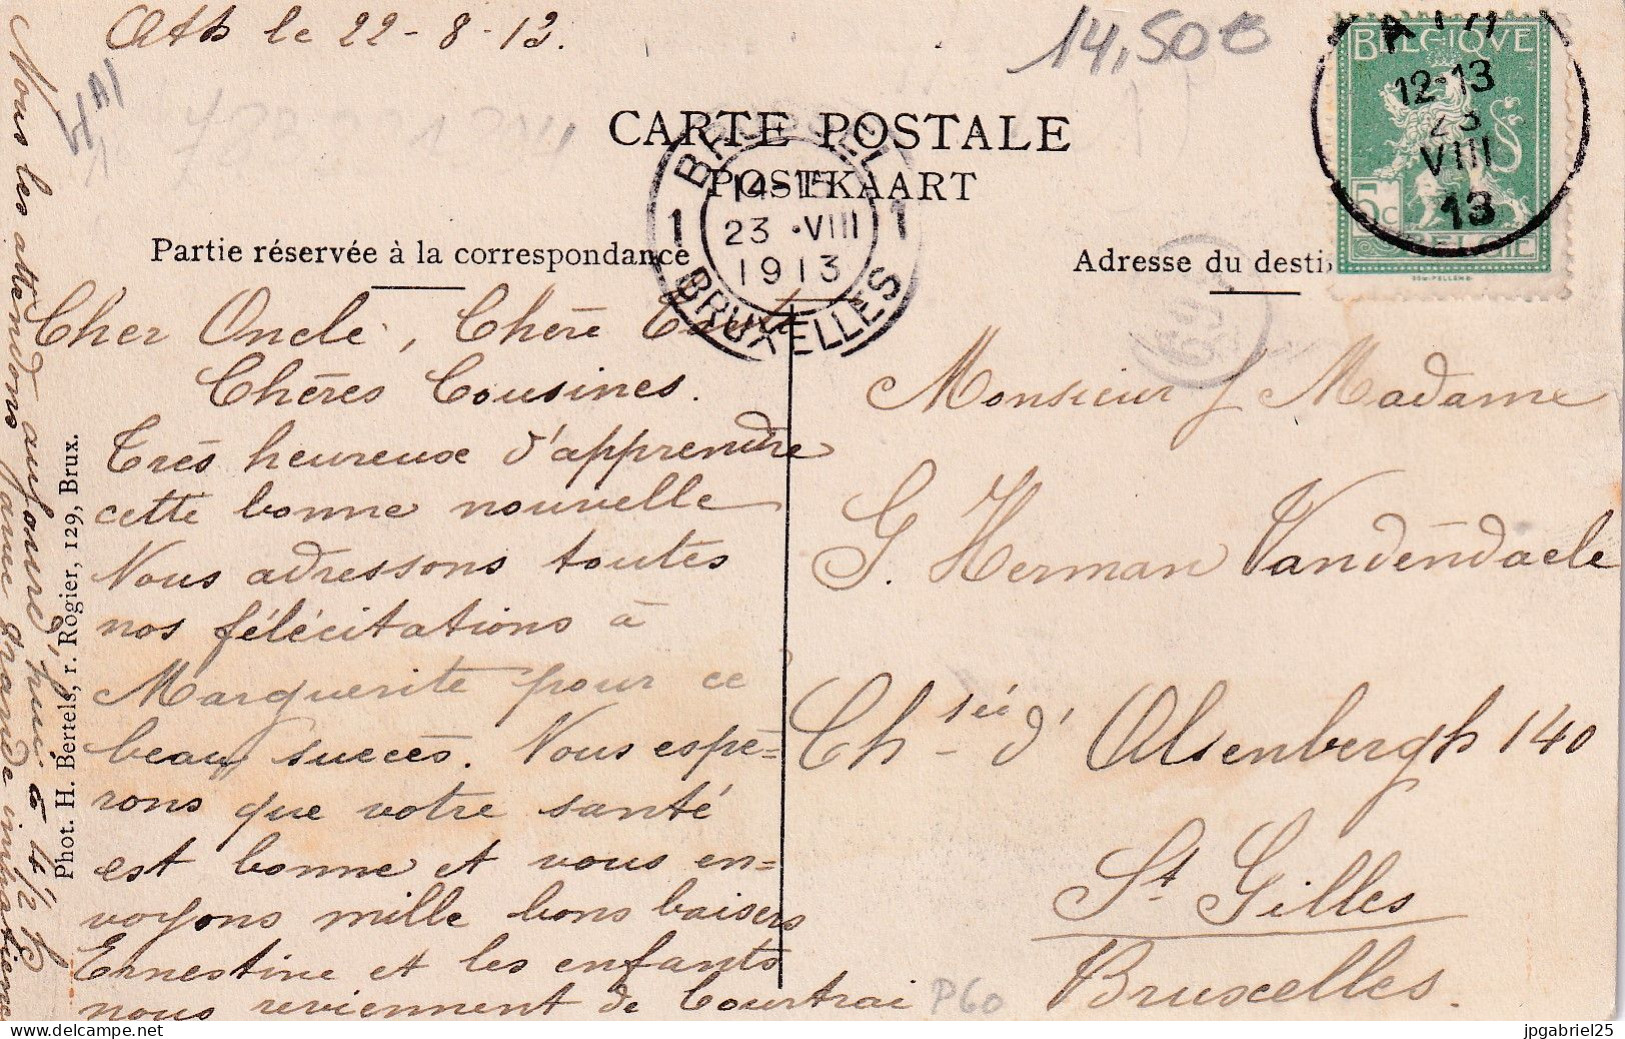 Ath le 22-8-13.
14,50€
HAI
CARTE POSTALE
POSTKAART
Partie réservée à la correspondance
Adresse du desti
BELGIQUE
5c
BELGIE
ATH
12-13
23
VIII
13
BRUXELLES
1 1
23 •VIII
1913
BRUXELLES
Cher Oncle, Chère Tante
Chères Cousines.
Très heureuse d'apprendre
cette bonne nouvelle
Nous adressons toutes
nos félécitations à
Marguerite pour ce
beau succès. Nous espé=
rons que votre santé
est bonne et vous en=
voyons mille bons baisers
Ernestine et les enfants
nous reviennent de Courtrai
aujourd'hui à 4 1/2 h
Nous les attendons avec grande impatience
Phot. H. Bertels, r. Rogier, 129, Brux.
Monsieur / Madame
G. Herman Vandendaele
Chsée d'Alsenbergh 140
St Gilles
Bruxelles.
P60
jpgabriel25